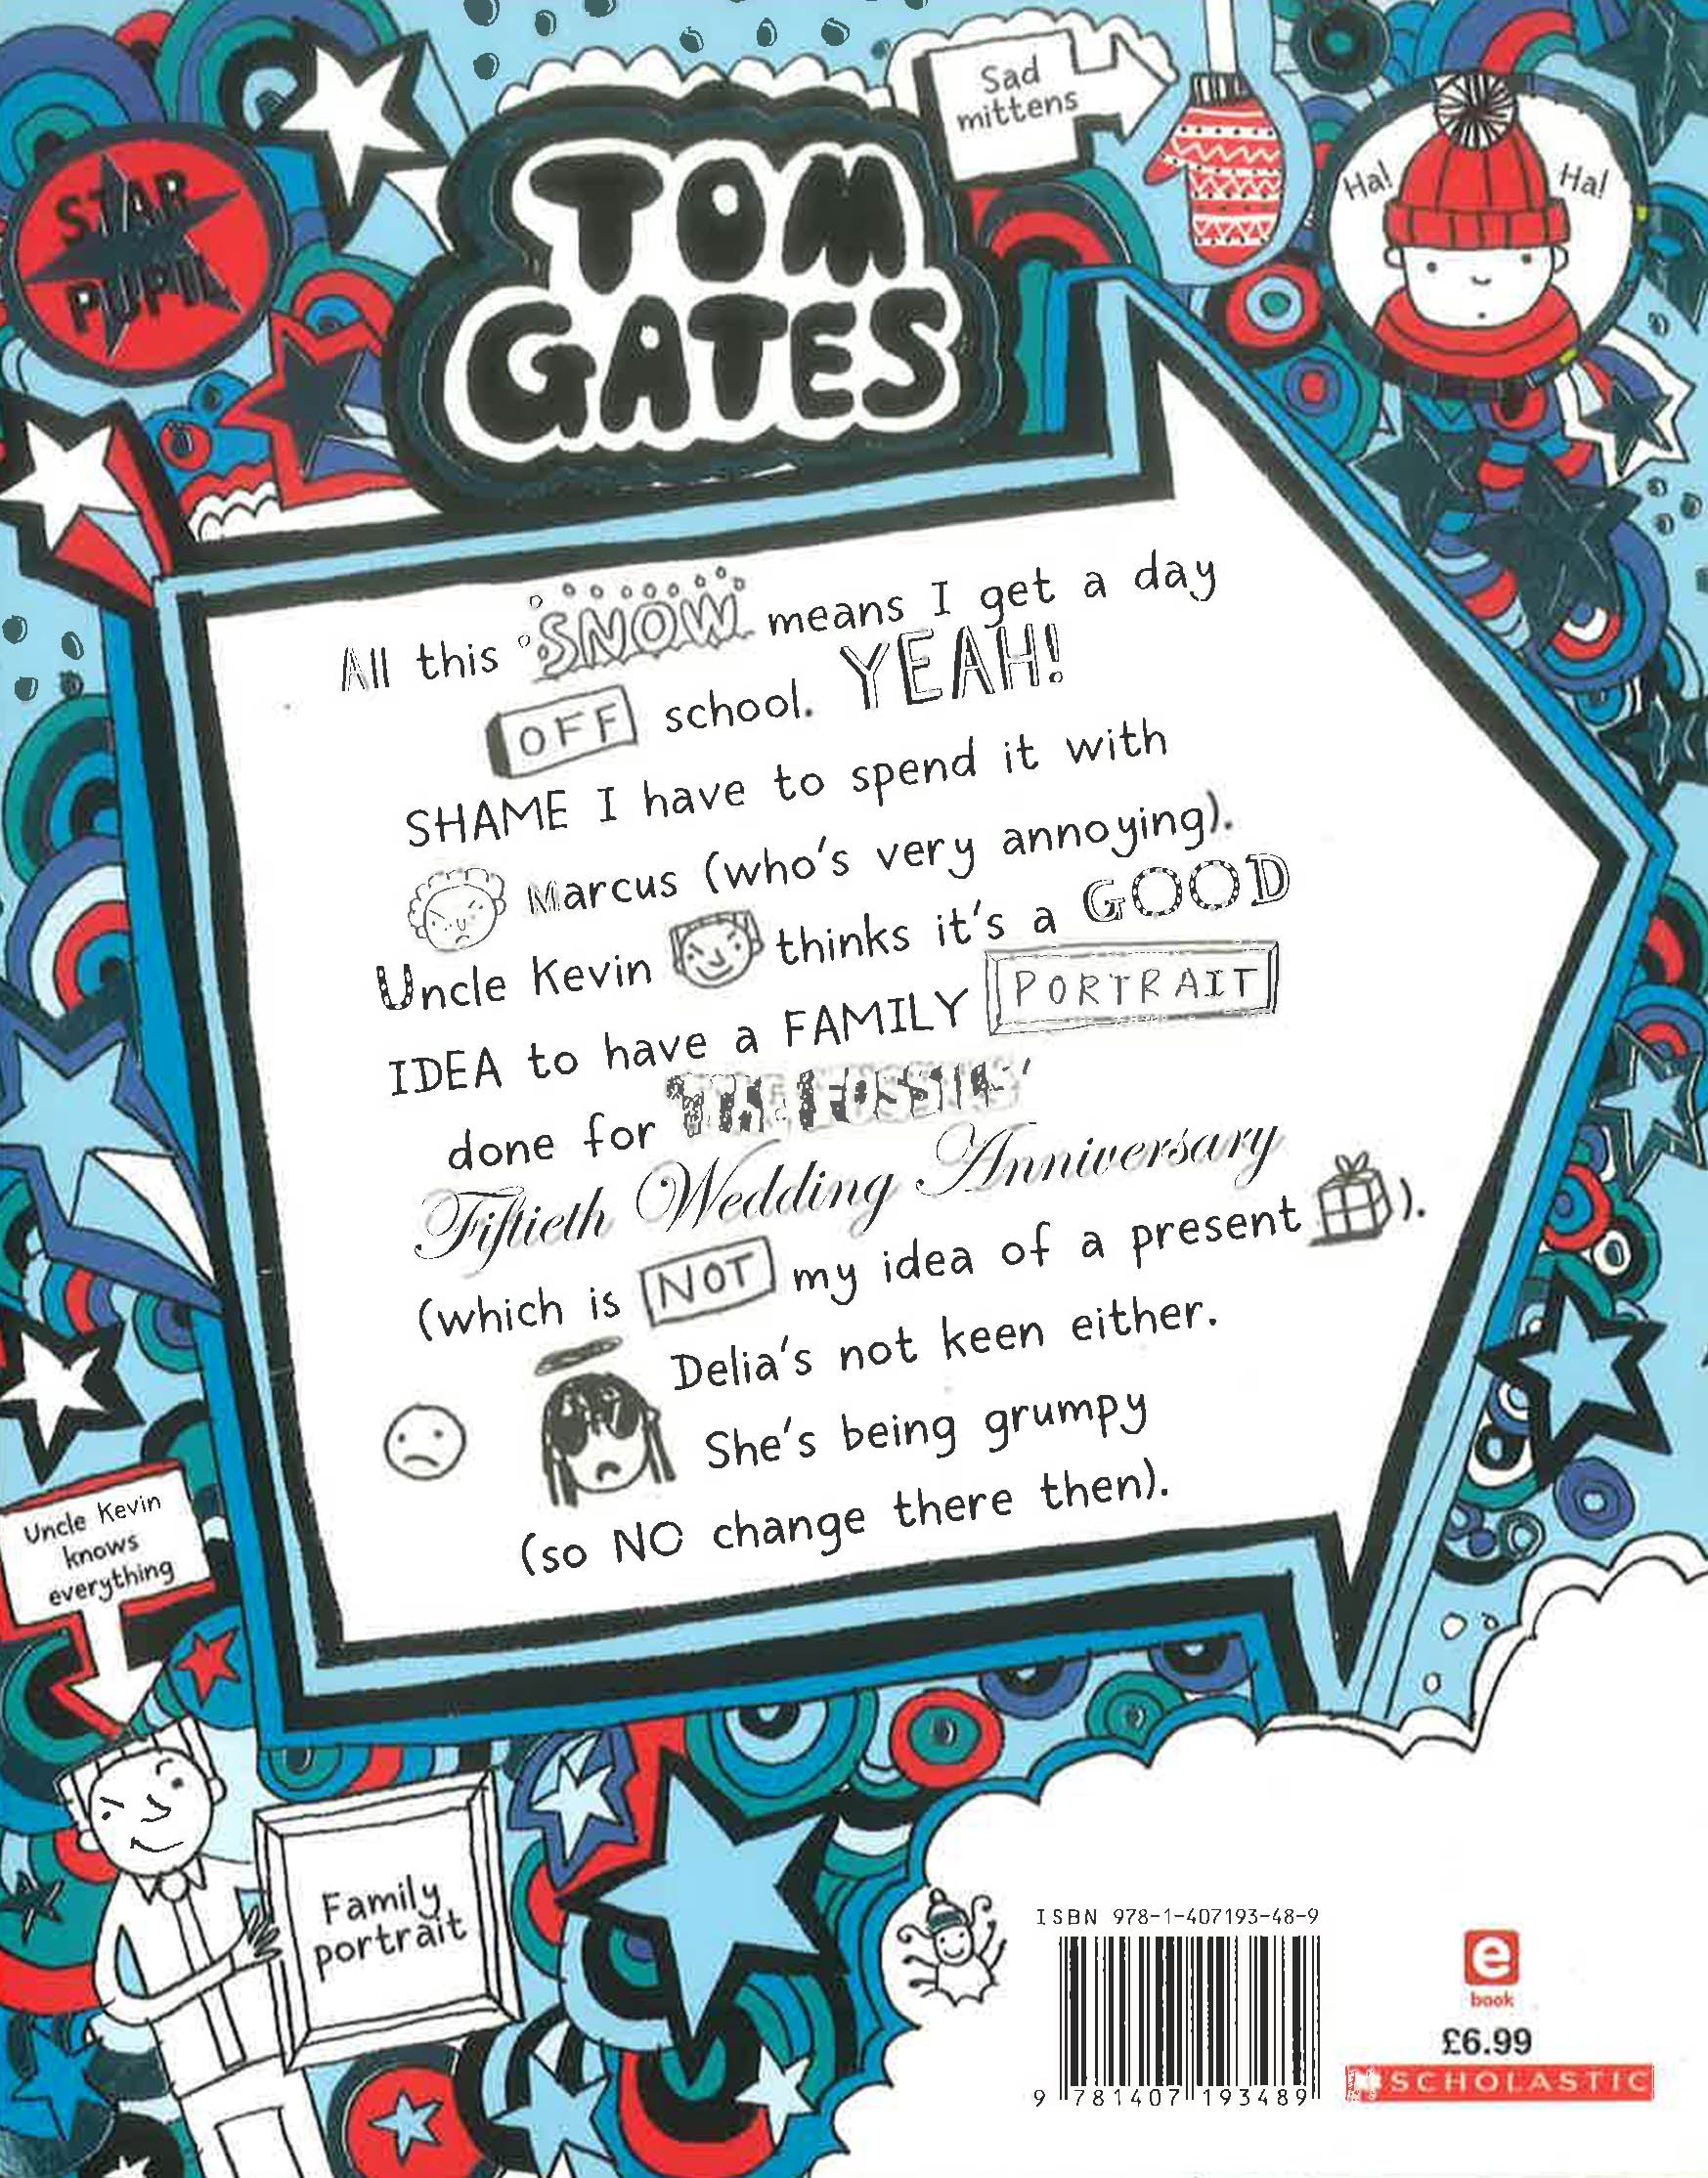 Sad
mittens
STAR
PUPIL
TOM
GATES
Ha!
Ha!
All this SNOW means I get a day
OFF school. YEAH!
SHAME I have to spend it with
Marcus (who's very annoying).
Uncle Kevin thinks it's a GOOD
IDEA to have a FAMILY PORTRAIT
done for 'THE FOSSILS'
Fiftieth Wedding Anniversary
(which is NOT my idea of a present).
Delia's not keen either.
She's being grumpy
(so NO change there then).
Uncle Kevin
knows
everything
Family
portrait
ISBN 978-1-407193-48-9
9 781407 193489
e
book
£6.99
SCHOLASTIC